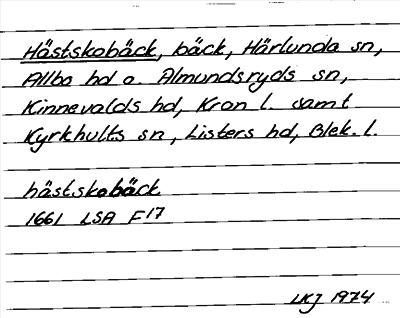 Hästskobäck, bäck, Härlunda sn,
Allbo hd o. Almundsryds sn,
Kinnevalds hd, Kron l. samt
Kyrkhults sn, Listers hd, Blek. l.
hästskobäck
1661 LSA F17
LKJ 1974